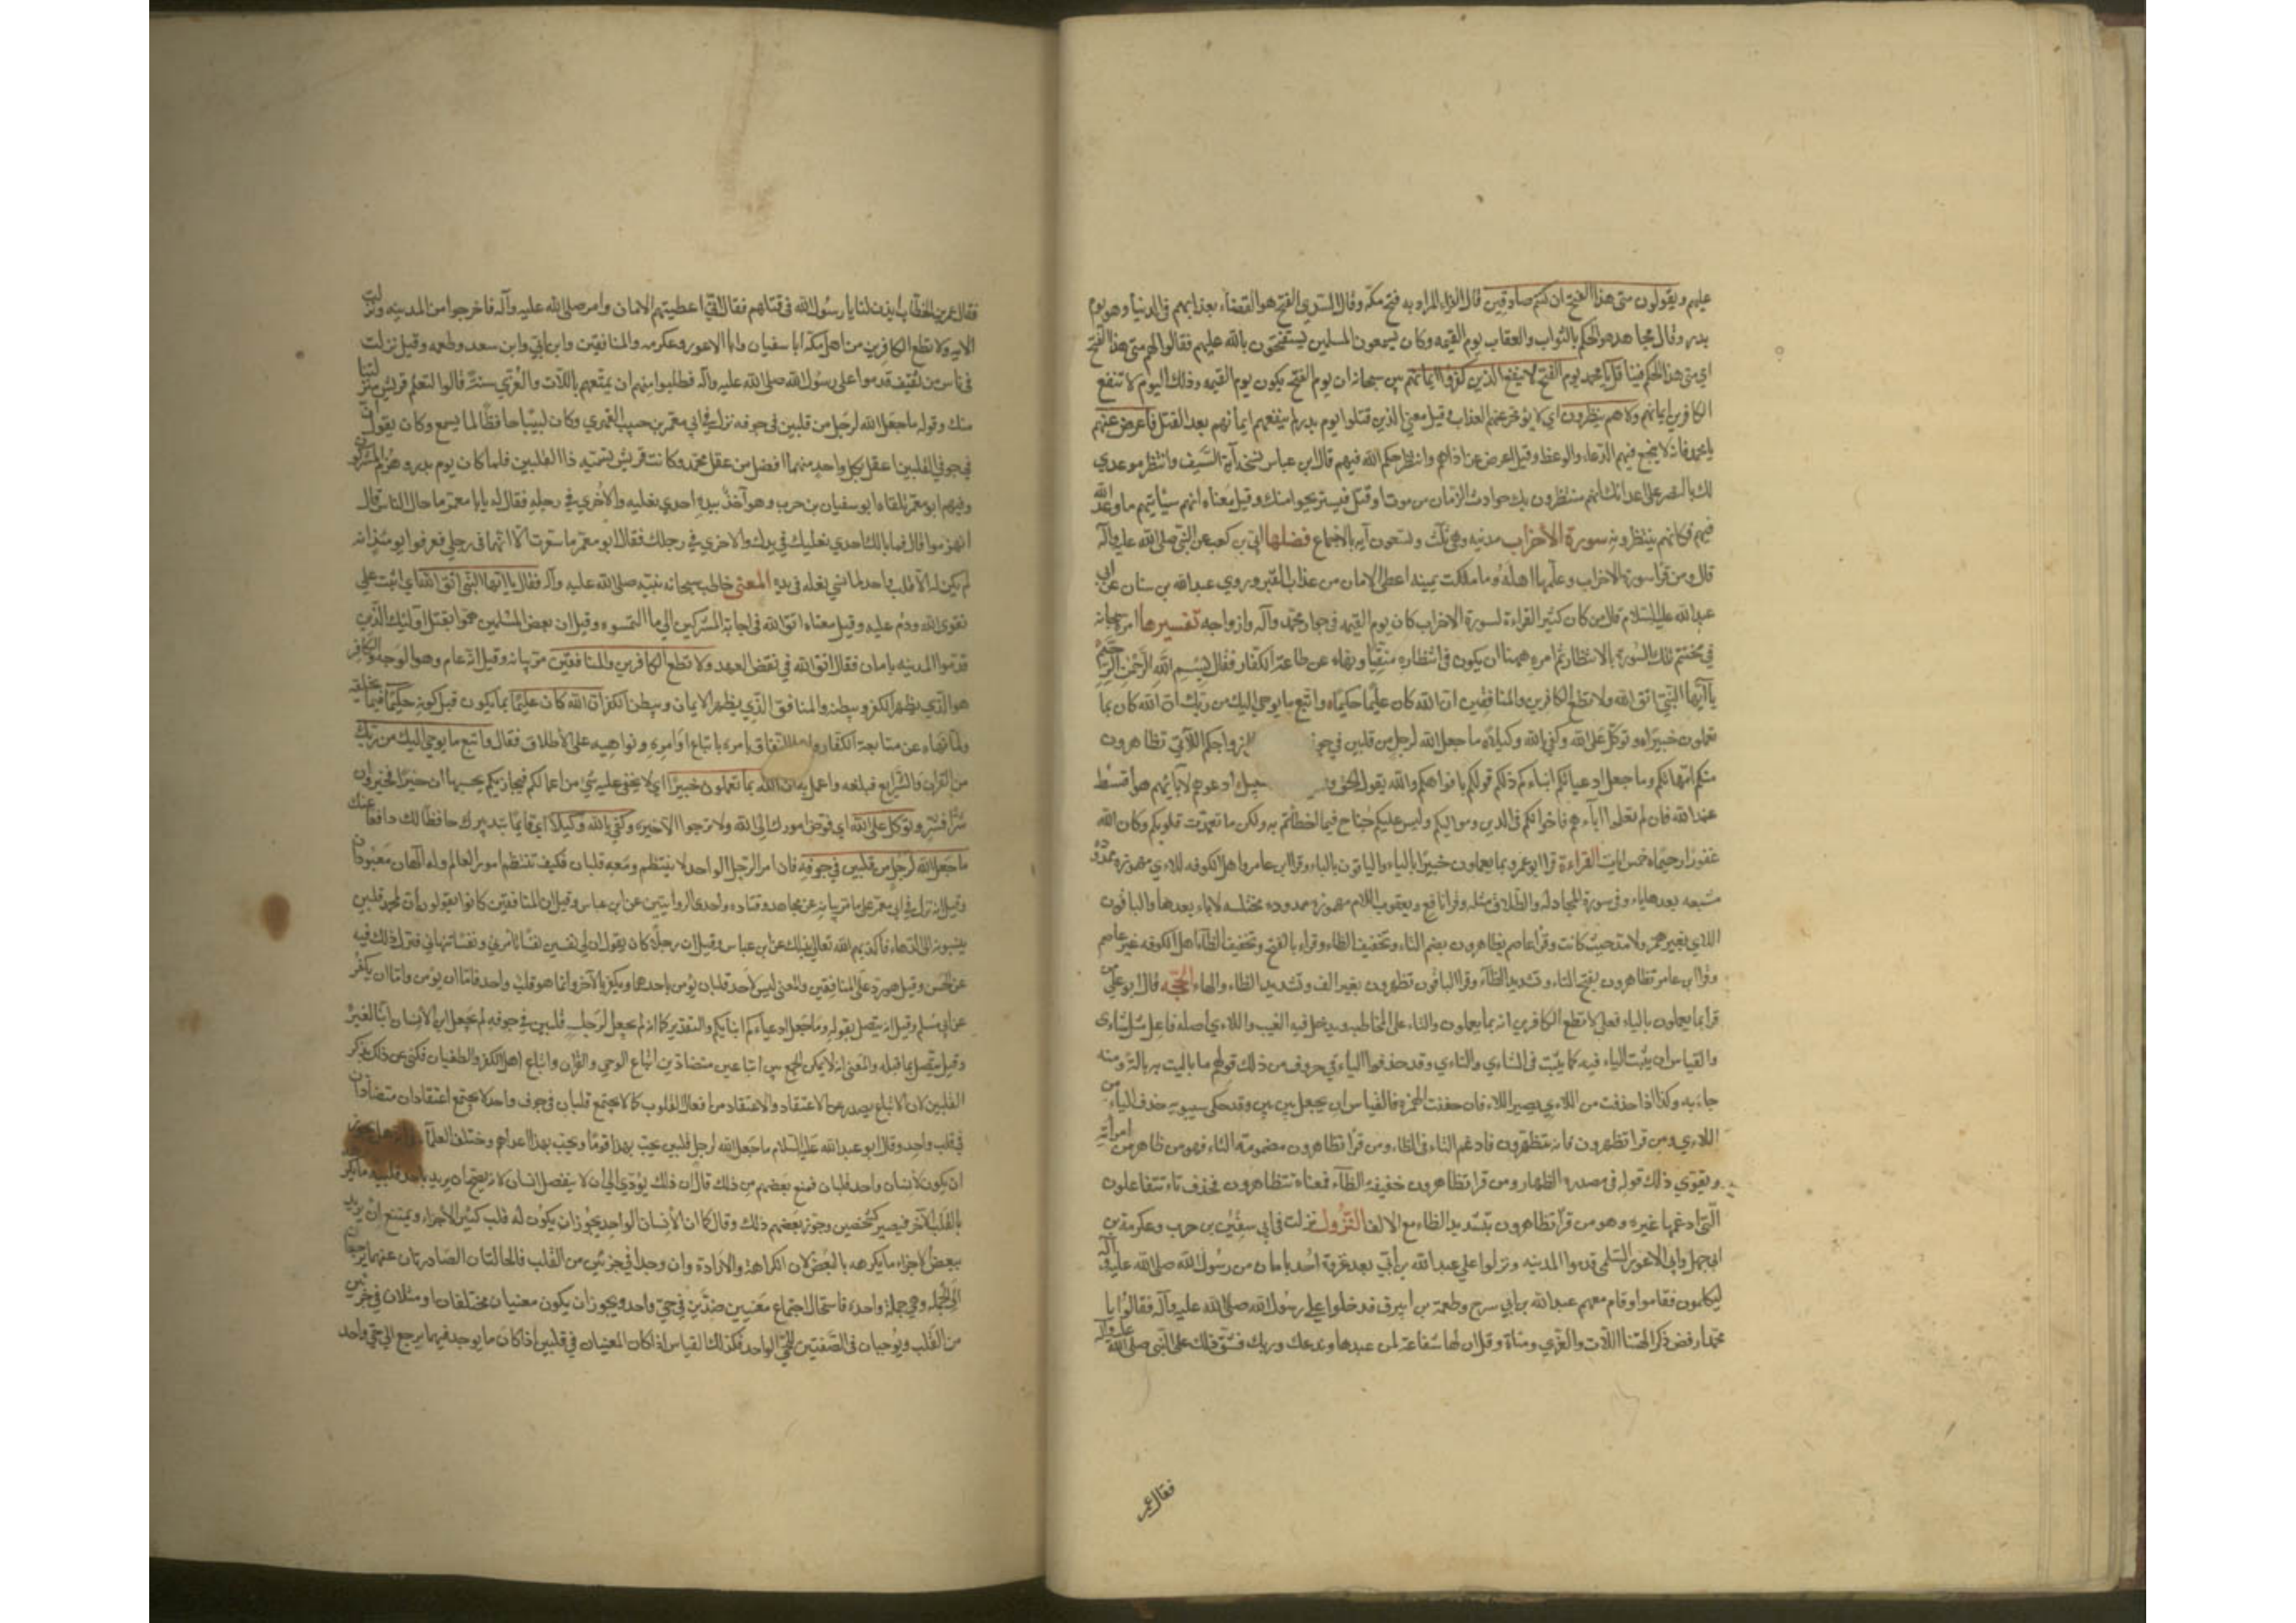 عليهم ويقولون متى هذا الفتح ان كنتم صادقين قال الفراء المراد به فتح مكة وقال السدي الفتح هو القضاء بعذابهم في الدنيا وهو يوم
بدر وقال مجاهد هو الحكم بالثواب والعقاب يوم القيمه وكان يسمعون المسلمين يستفتحون بالله عليهم فقالوا لهم متى هذا الفتح
اي متى هذا الحكم فينا قل يا محمد يوم الفتح لا ينفع الذين كفروا ايمانهم بين سبحانه ان يوم الفتح يكون يوم القيمه وذلك اليوم لا تنفع
الكافرين ايمانهم ولا هم ينظرون اي لا يؤخر عنهم العذاب وقيل معنى الذين قتلوا يوم بدر لم ينفعهم ايمانهم بعد القتل فاعرض عنهم
يا محمد فانه لا ينجع فيهم الدعاء والوعظ وقيل اعرض عن اذاهم وانتظر حكم الله فيهم قال ابن عباس نسخه آية السيف وانتظر موعدي
لك بالنصر على اعدائك انهم منتظرون بك حوادث الزمان من موت او قتل فيستريحوا منك وقيل معناه انهم سيأتيهم ما وعد الله
فيهم فكانهم ينتظرونه سورة الأحزاب مدنيه وهي ثلث وتسعون آيه بالاجماع فضلها ابي بن كعب عن النبي صلى الله عليه وآله
قال ومن قرأ سورة الاحزاب وعلمها اهله وما ملكت يمينه اعطي الامان من عذاب القبر وروي عبدالله بن سنان عن ابي
عبدالله عليه السلام قال من كان كثير القراءة لسورة الاحزاب كان يوم القيمه في جوار محمد وآله وازواجه تفسيرها امر سبحانه
في مختتم تلك السورة بالانتظار ثم امره ههنا ان يكون في انتظاره متقيا ونهاه عن طاعة الكفار فقال بسم الله الرحمن الرحيم
يا ايها النبي اتق الله ولا تطع الكافرين والمنافقين ان الله كان عليما حكيما واتبع ما يوحى اليك من ربك ان الله كان بما
تعملون خبيرا وتوكل على الله وكفى بالله وكيلا ما جعل الله لرجل من قلبين في جو ازواجكم اللآئي تظاهرون
منكم امهاتكم وما جعل ادعيائكم ابناءكم ذلكم قولكم بافواهكم والله يقول الحق و ادعوهم لابائهم هو اقسط
عند الله فان لم تعلموا آباءهم فاخوانكم في الدين ومواليكم وليس عليكم جناح فيما اخطأتم به ولكن ما تعمدت قلوبكم وكان الله
غفورا رحيما خمس ايات القراءة قرأ ابو عمرو بما يعملون خبيرا بالياء والباقون بالتاء وقرأ ابن عامر واهل الكوفه اللاءي مهموزه ممدوده
مشبعه بعدها ياء وفي سورة المجادله والطلاق مثله وقرأ نافع ويعقوب اللاء مهموزه ممدوده مختلسه لا ياء بعدها والباقون
اللاي بغير همز ولا مد حيث كانت وقرأ عاصم تظاهرون بضم التاء وتخفيف الظاء وقراء بالفتح وتخفيف الظاء اهل الكوفه غير عاصم
وقرأ ابن عامر تظاهرون بفتح التاء وتشديد الظآء وقرأ الباقون تظهرون بغير الف وتشديد الظاء والهاء الحجه قال ابو علي من
قرأ بما يعملون بالياء فعلى لا تطع الكافرين انه بما يعملون والتاء على المخاطب ويدخل فيه الغيب واللاءي اصله فاعل مثل شاءى
والقياس ان يثبت الياء فيه كما يثبت في الشاءي والناءي وقد حذفوا الياء في حروف من ذلك قولهم ما باليت به بالة ومنه
جاءبه وكذا اذا حذفت من اللاءي يصير اللاء فان خففت الهمزه فالقياس ان يجعل بين بين وقد حكى سيبويه حذف الياء من
اللاءي ومن قرأ تظهرون فانه تتظهرون فادغم التاء في الظاء ومن قرأ تظاهرون مضمومة التاء فهو من ظاهر من امرأته
ويقوي ذلك قوله في مصدره الظهار ومن قرأ تظاهرون خفيفة الظآء فمعناه تتظاهرون فحذف تاء تتفاعلون
التي ادغمها غيره وهو من قرأ تظاهرون بتشديد الظاء مع الالف النزول نزلت في ابي سفين بن حرب وعكرمة بن
ابي جهل وابي الاعور السلمي قدموا المدينه ونزلوا على عبدالله بن أبي بعد غزوة احد بامان من رسول الله صلى الله عليه وآله
ليكلموه فقاموا وقام معهم عبدالله بن ابي سرح وطعمة بن ابيرق فدخلوا على رسول الله صلى الله عليه وآله فقالوا يا
محمد ارفض ذكر الهتنا اللات والعزى ومناة وقل ان لها شفاعة لمن عبدها وندعك وربك فشق ذلك على النبي صلى الله عليه وآله
فقال عمر
فقال عمر بن الخطاب ايذن لنا يا رسول الله في قتلهم فقال اني اعطيتهم الامان وامر صلى الله عليه وآله فاخرجوا من المدينه ونزلت
الايه ولا تطع الكافرين من اهل مكه ابا سفيان وابا الاعور وعكرمه والمنافقين وابن ابي وابن سعد وطعمه وقيل نزلت
في ناس من ثقيف قدموا على رسول الله صلى الله عليه وآله فطلبوا منه ان يمتعهم باللات والعزى سنة قالوا لتعلم قريش منزلتنا
منك وقوله ما جعل الله لرجل من قلبين في جوفه نزل في ابي معمر بن حبيب الفهري وكان لبيبا حافظا لما يسمع وكان يقول ان
في جوفي القلبين اعقل بكل واحد منهما افضل من عقل محمد وكانت قريش تسميه ذا القلبين فلما كان يوم بدر وهزم المشركون
وفيهم ابو معمر تلقاه ابو سفيان بن حرب وهو آخذ بيده احدى نعليه والأخرى في رجله فقال له يا با معمر ما حال الناس قال
انهزموا قال فما بالك احدى نعليك في يدك والاخرى في رجلك فقال ابو معمر ما شعرت الا انهما في رجلي فعرفوا يومئذ انه
لم يكن له الا قلب واحد لما نسي نعله في يده المعنى خاطب سبحانه نبيه صلى الله عليه وآله فقال يا ايها النبي اتق الله اي اثبت على
تقوى الله ودم عليه وقيل معناه اتق الله في اجابة المشركين الى ما التمسوه وقيل ان بعض المسلمين هموا بقتل اولئك الذين
قدموا المدينه بامان فقال اتق الله في نقض العهد ولا تطع الكافرين والمنافقين مر بيانه وقيل انه عام وهو الوجه والكافر
هو الذي يظهر الكفر ويبطنه والمنافق الذي يظهر الايمان ويبطن الكفر ان الله كان عليما بما يكون قبل كونه حكيما فيما يخلقه
ولما نهاه عن متابعة الكفار واهل النفاق امره باتباع اوامره ونواهيه على الأطلاق فقال واتبع ما يوحى اليك من ربك
من القران والشرايع فبلغه واعمل به ان الله بما تعملون خبيرا اي لا يخفى عليه شيء من اعمالكم فيجازيكم بحسبها ان خيرا فخير وان
شرا فشر وتوكل على الله اي فوض امورك الى الله ولا ترجوا الا خيره وكفى بالله وكيلا اي قايما بتدبيرك حافظا لك دافعا عنك
ما جعل الله لرجل من قلبين في جوفه فان امر الرجل الواحد لا ينتظم ومعه قلبان فكيف تنتظم امور العالم وله الهان معبودان
وقيل انه نزل في ابي معمر على ما مر بيانه عن مجاهد وقتاده واحدى الروايتين عن ابن عباس وقيل ان المنافقين كانوا يقولون ان لمحمد قلبين
ينسبونه الى الدهاء فاكذبهم الله تعالى بذلك عن ابن عباس وقيل ان رجلا كان يقول ان لي نفسين نفسا تامرني ونفسا تنهاني فنزل ذلك فيه
عن الحسن وقيل هو رد على المنافقين والمعنى ليس لاحد قلبان يؤمن باحدهما ويكفر بالآخر وانما هو قلب واحد فاما ان يؤمن واما ان يكفر
عن ابي مسلم وقيل انه يتصل بقوله وما جعل ادعياءكم ابناءكم والتقدير كما انه لم يجعل لرجل قلبين في جوفه لم يجعل ابن الانسان ابنا لغيره
وقيل متصل بما قبله والمعنى انه لا يمكن الجمع بين اتباعين متضادين اتباع الوحي والقران واتباع اهل الكفر والطغيان فكنى عن ذلك بذكر
القلبين لان الاتباع يصدر عن الاعتقاد والاعتقاد من افعال القلوب كما لا يجتمع قلبان في جوف واحد لا يجتمع اعتقادان متضادان
في قلب واحد وقال ابو عبدالله عليه السلام ما جعل الله لرجل قلبين يحب بهذا قوما ويحب بهذا اعداءهم واختلف العلماء
ان يكون لانسان واحد قلبان فمنع بعضهم من ذلك قال ان ذلك يؤدي الى ان لا ينفصل انسان لانه يصح ان يريد باحد قلبيه ما يكره
بالقلب الآخر فيصير كشخصين وجوز بعضهم ذلك وقال كما ان الأنسان الواحد يجوز ان يكون له قلب كثير الأجزاء ويمتنع ان يريد
ببعض الاجزاء ما يكرهه بالبعض لان الكراهة والارادة وان وجدا في جزئين من القلب فالحالتان الصادرتان عنهما يرجعان
الى الجمله وهي جملة واحدة فاستحال اجتماع معنيين ضدين في حي واحد ويجوز ان يكون معنيان مختلفان او مثلان في جزئين
من القلب ويوجبان في الصفتين للحي الواحد فكذلك القياس اذا كان المعنيان في قلبين اذا كان ما يوجد فيهما يرجع الى حي واحد